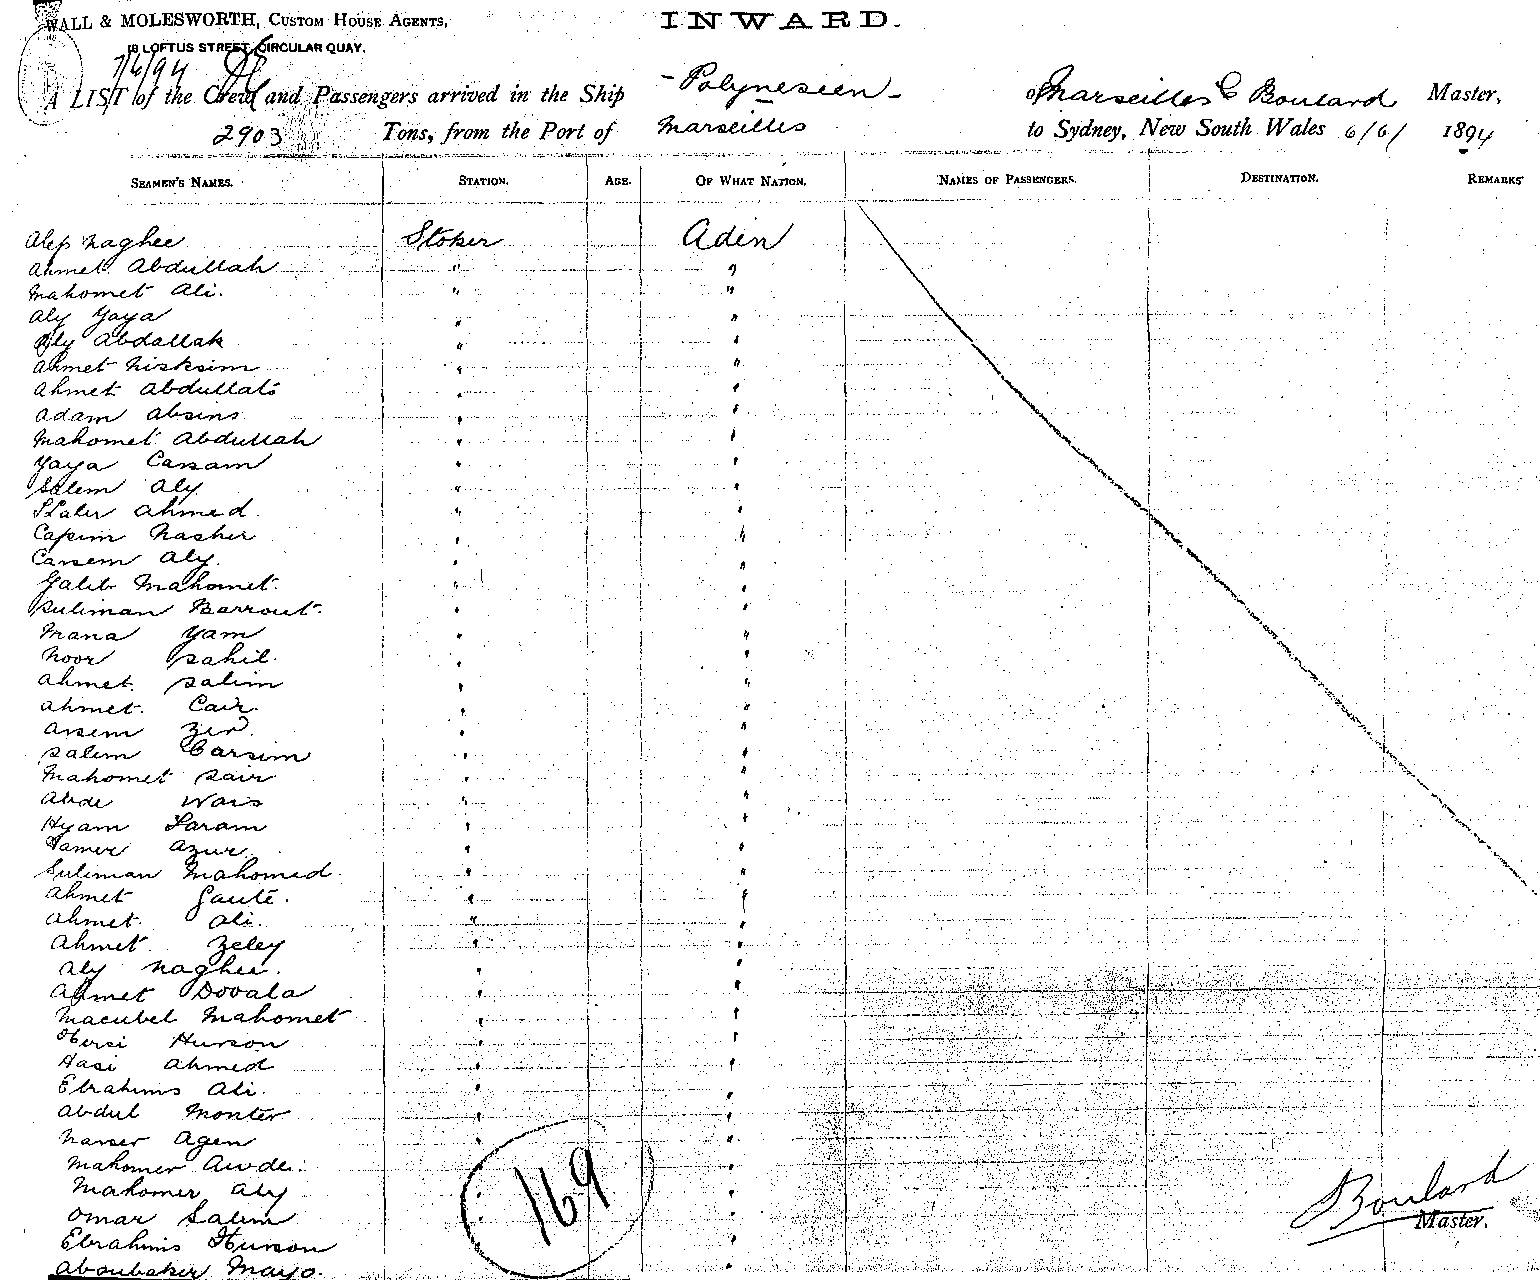 WALL & MOLESWORTH, CUSTOM HOUSE AGENTS,
INWARD.
18 LOFTUS STREET, CIRCULAR QUAY.
7/6/94
A LIST of the Crew and Passengers arrived in the Ship - Polynesien - of Marseilles E Boulard Master,
2903 Tons, from the Port of Marseilles to Sydney, New South Wales 6/6/ 1894
SEAMEN'S NAMES. STATION. AGE. OF WHAT NATION. NAMES OF PASSENGERS. DESTINATION. REMARKS
Naghee Stoker Aden
Ahmet Abdullah " "
Mahomet Ali. " "
Aly Yaya " "
Aly Abdallah " "
Ahmet " "
Ahmet " "
Adam Absins " "
Mahomet Abdullah " "
Yaya Cassam " "
Salem Aly " "
Ahmed. " "
Nasher " "
Cassem Aly. " "
Galeb Mahomet. " "
Suliman Barrout. " "
Mana Yam " "
Noor Sahil. " "
Ahmet. Salim " "
Ahmet. " "
Assem " "
Salem Carsim " "
Mahomet Sair " "
Abde Wais " "
Hyam Saram " "
Samer Azur. " "
Suliman Mahomed. " "
Ahmet Gaute. " "
Ahmet. Ali. " "
Ahmet Zeley " "
Aly Naghee. " "
Ahmet Dovala " "
Macubel Mahomet " "
Hersi Hurson " "
Hasi Ahmed " "
Ebrahims Ali. " "
Abdul Monter " "
Nasser Agen " "
Mahomer Awde. " "
Mahomer Aly " "
Omar Salem " "
Ebrahims Hurson "
Aboubaker Mayo. "
169
Boulard
Master.